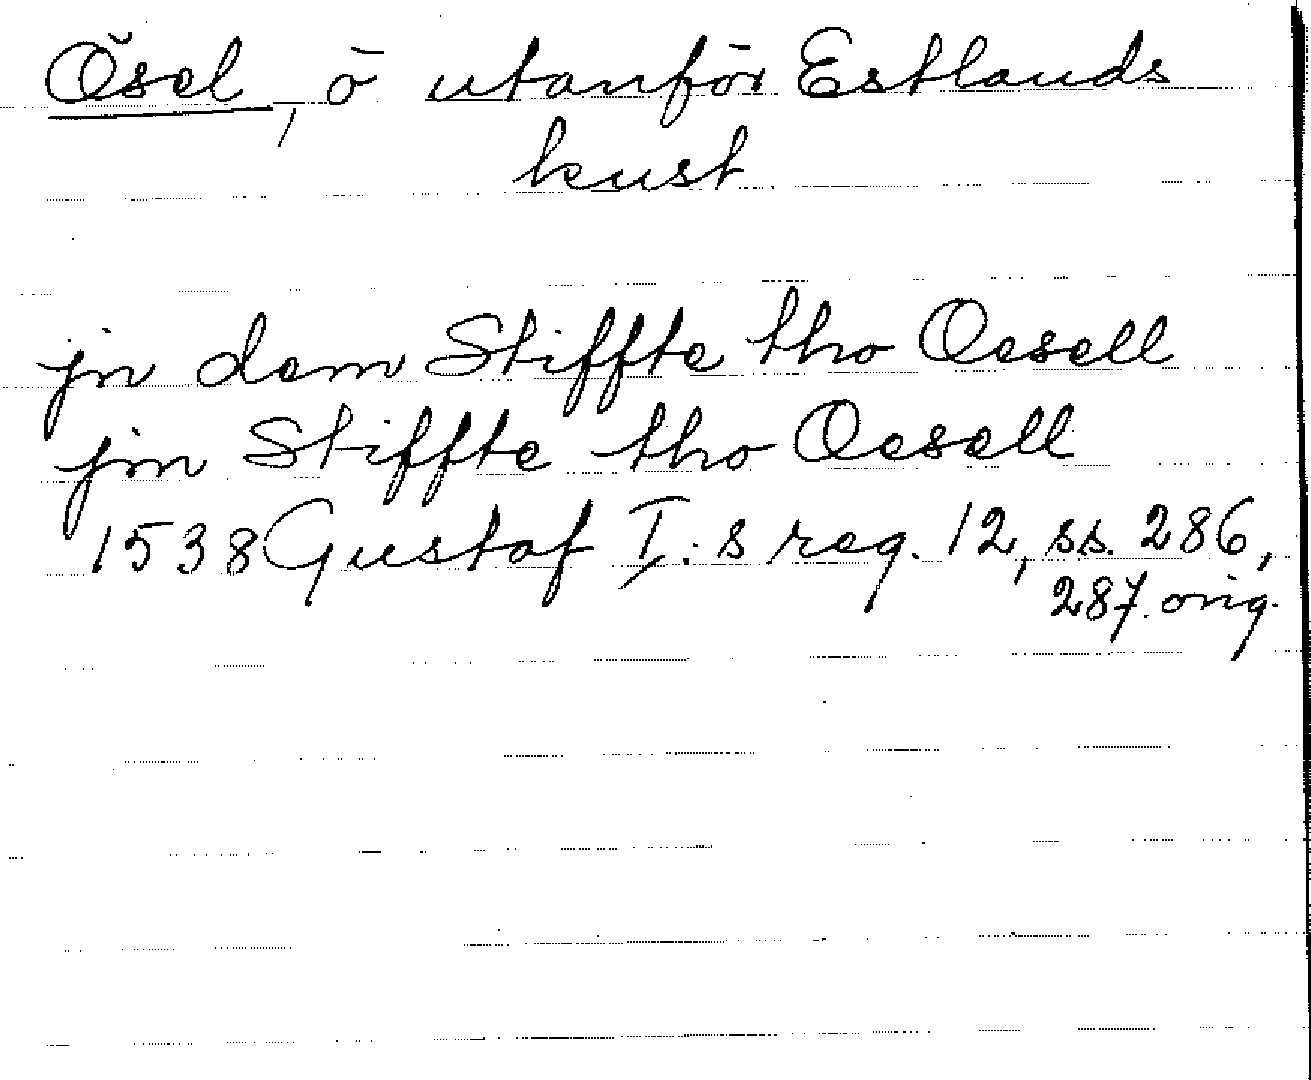 Ösel, ö utanför Estlands
kust
jn dem Stiffte tho Oesell
jm Stiffte tho Oesell
1538 Gustaf I:s reg. 12, ss. 286,
287. orig.